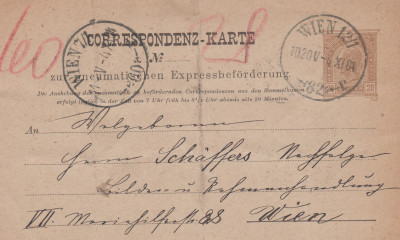 CORRESPONDENZ-KARTE
№ 28
zur pneumatischen Expressbeförderung.
Die Aushebung der pneumatisch zu befördernden Correspondenzen aus den Sammelkästen
erfolgt täglich in der Zeit von 7 Uhr früh bis 8¾ Uhr abends alle 20 Minuten.
WIEN
WIEN 12/1
An Wolgeboren
Herrn Schäffers Nachfolger
Bilder u Rahmenhandlung
VII. Mariahilferstr 28 Wien